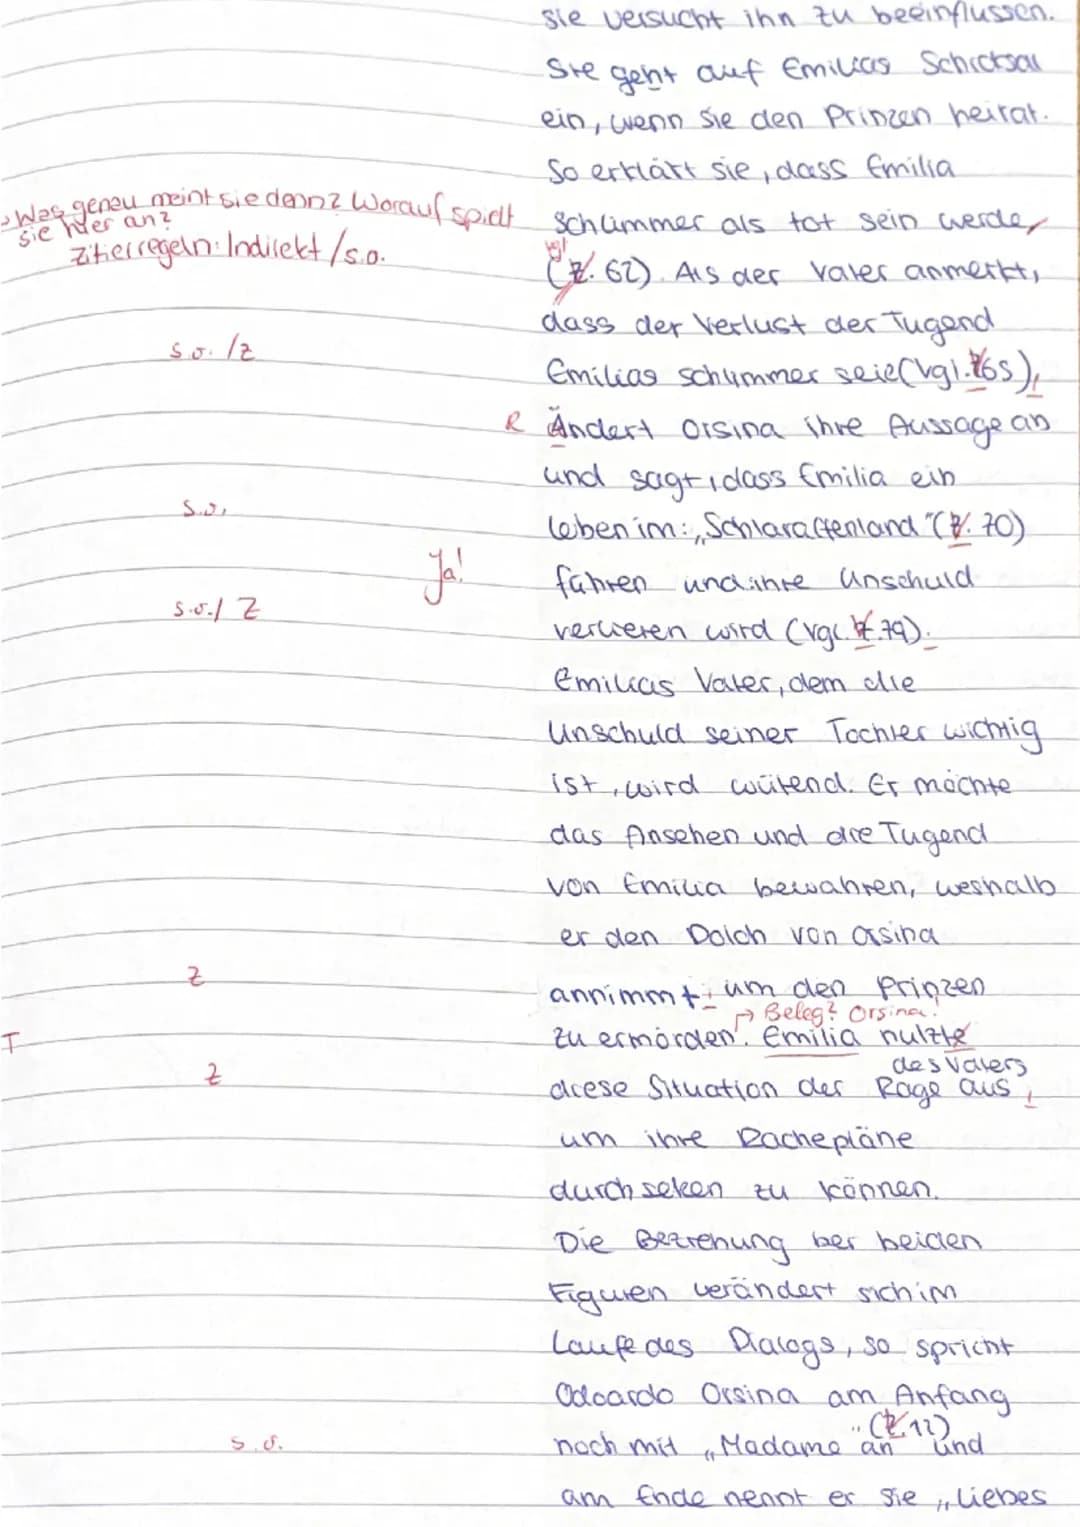 sie versucht ihn zu beeinflussen.
Sie geht auf Emilias Schicksal
ein, wenn sie den Prinzen heirat.
So erklärt sie, dass Emilia
> Was genau meint sie denn? Worauf spielt
sie hier an?
Zitierregeln: Indirekt /s.o.
schlimmer als tot sein werde
vgl
(Z. 62). Als der Vater anmerkt,
dass der Verlust der Tugend
s.o. /Z
Emilias schlimmer seie (vgl. Z65),
R Ändert Orsina ihre Aussage an
und sagt, dass Emilia ein
s.o.
leben im: „Schlaraffenland" (Z. 70)
Ja!
führen und ihre Unschuld
s.o./ Z
verlieren wird (vgl. Z.79).
Emilias Vater, dem die
Unschuld seiner Tochter wichtig
ist, wird wütend. Er möchte
das Ansehen und die Tugend
von Emilia bewahren, weshalb
er den Dolch von Orsina
Z
annimmt, um den Prinzen
→ Beleg? Orsina!
T
zu ermorden. Emilia nutzte
des Vaters
Z
diese Situation der Rage aus,
um ihre Rachepläne
durchsetzen zu können.
Die Beziehung der beiden
Figuren verändert sich im
Laufe des Dialogs, so spricht
Odoardo Orsina am Anfang
" (Z. 12)
s.o.
noch mit „Madame an und
am Ende nennt er sie „Liebes